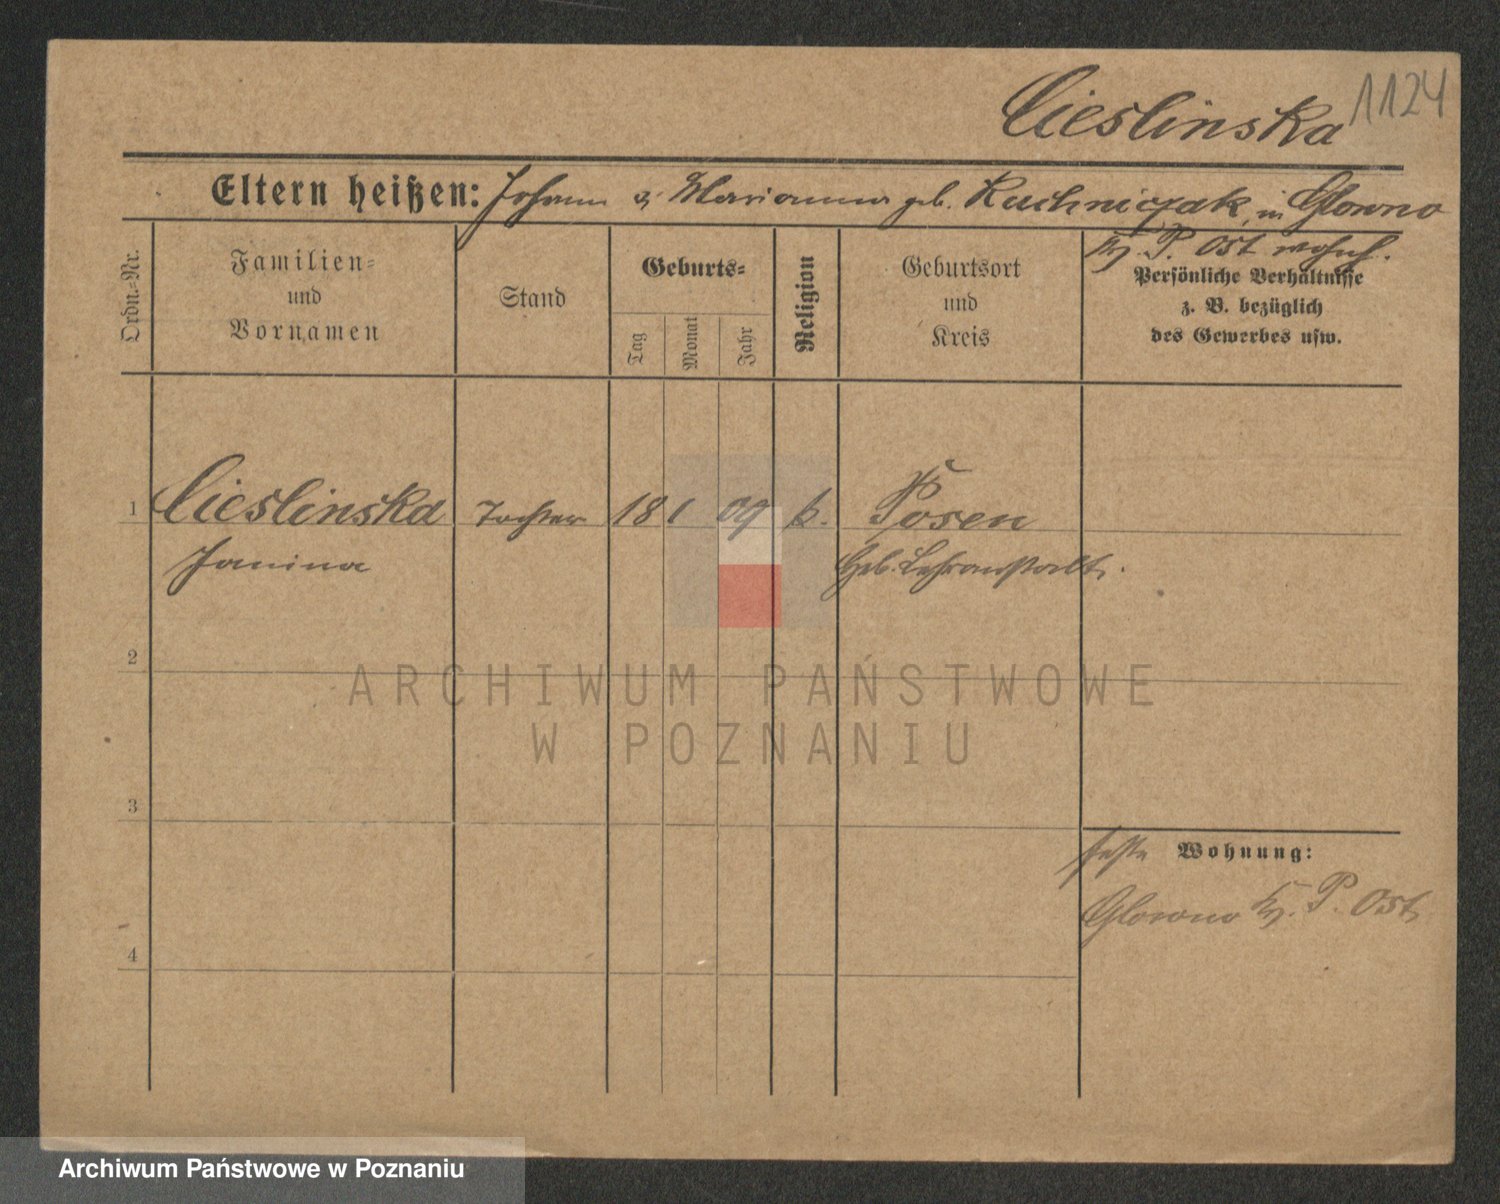 1124
Cieslinska
Eltern heißen: Johann u. Marianna geb. Kuchniczak, in Glowno
Kr. P. Ost wohnh.
Ordn.=Nr.
Familien=
und
Vornamen
Stand
Geburts=
Tag
Monat
Jahr
Religion
Geburtsort
und
Kreis
Persönliche Verhältnisse
z. B. bezüglich
des Gewerbes usw.
1
Cieslinska
Tochter
18
1
09
k.
Posen
Janina
Geb. Lehranstalt.
2
ARCHIWUM PAŃSTWOWE
W POZNANIU
3
feste Wohnung:
Glowno Kr. P. Ost
4
Archiwum Państwowe w Poznaniu